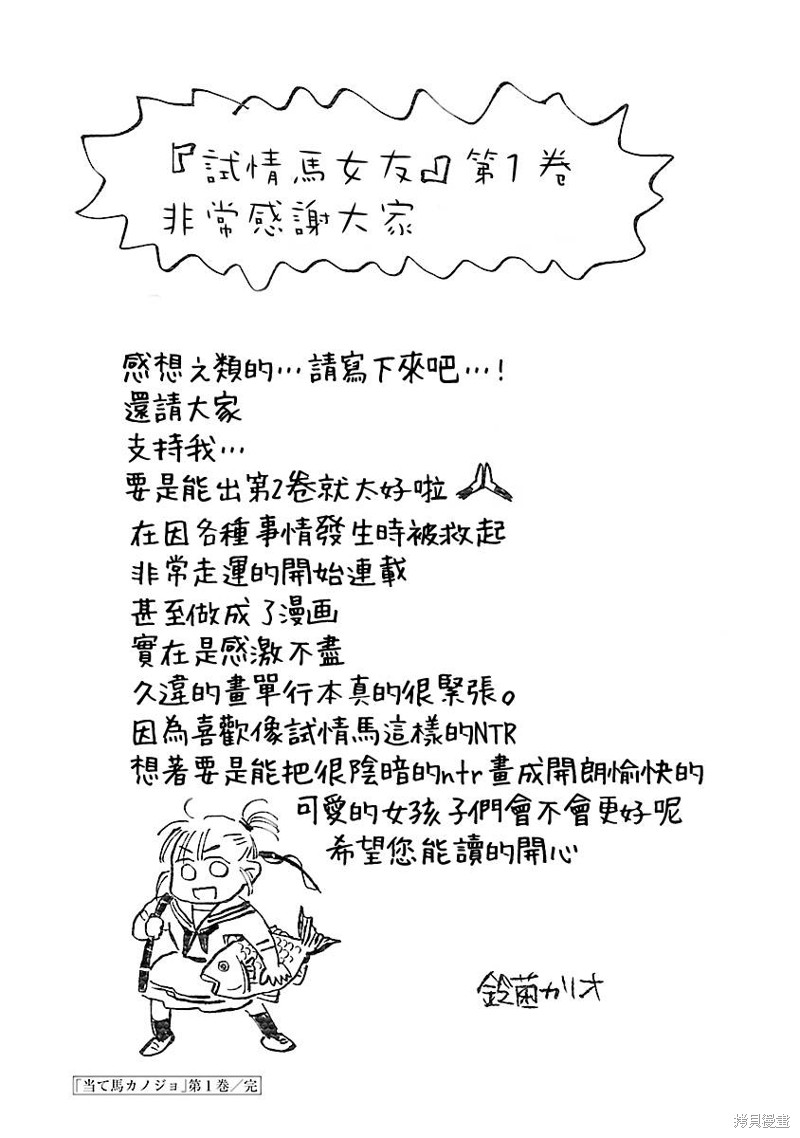 『試情馬女友』第1卷
非常感謝大家
感想之類的…請寫下來吧…!
還請大家
支持我…
要是能出第2卷就太好啦
在因各種事情發生時被救起
非常走運的開始連載
甚至做成了漫画
實在是感激不盡
久違的畫單行本真的很緊張。
因為喜歡像試情馬這樣的NTR
想著要是能把很陰暗的ntr畫成開朗愉快的
可愛的女孩子們會不會更好呢
希望您能讀的開心
鈴菌カリオ
『当て馬カノジョ』第1巻/完
拷貝漫畫